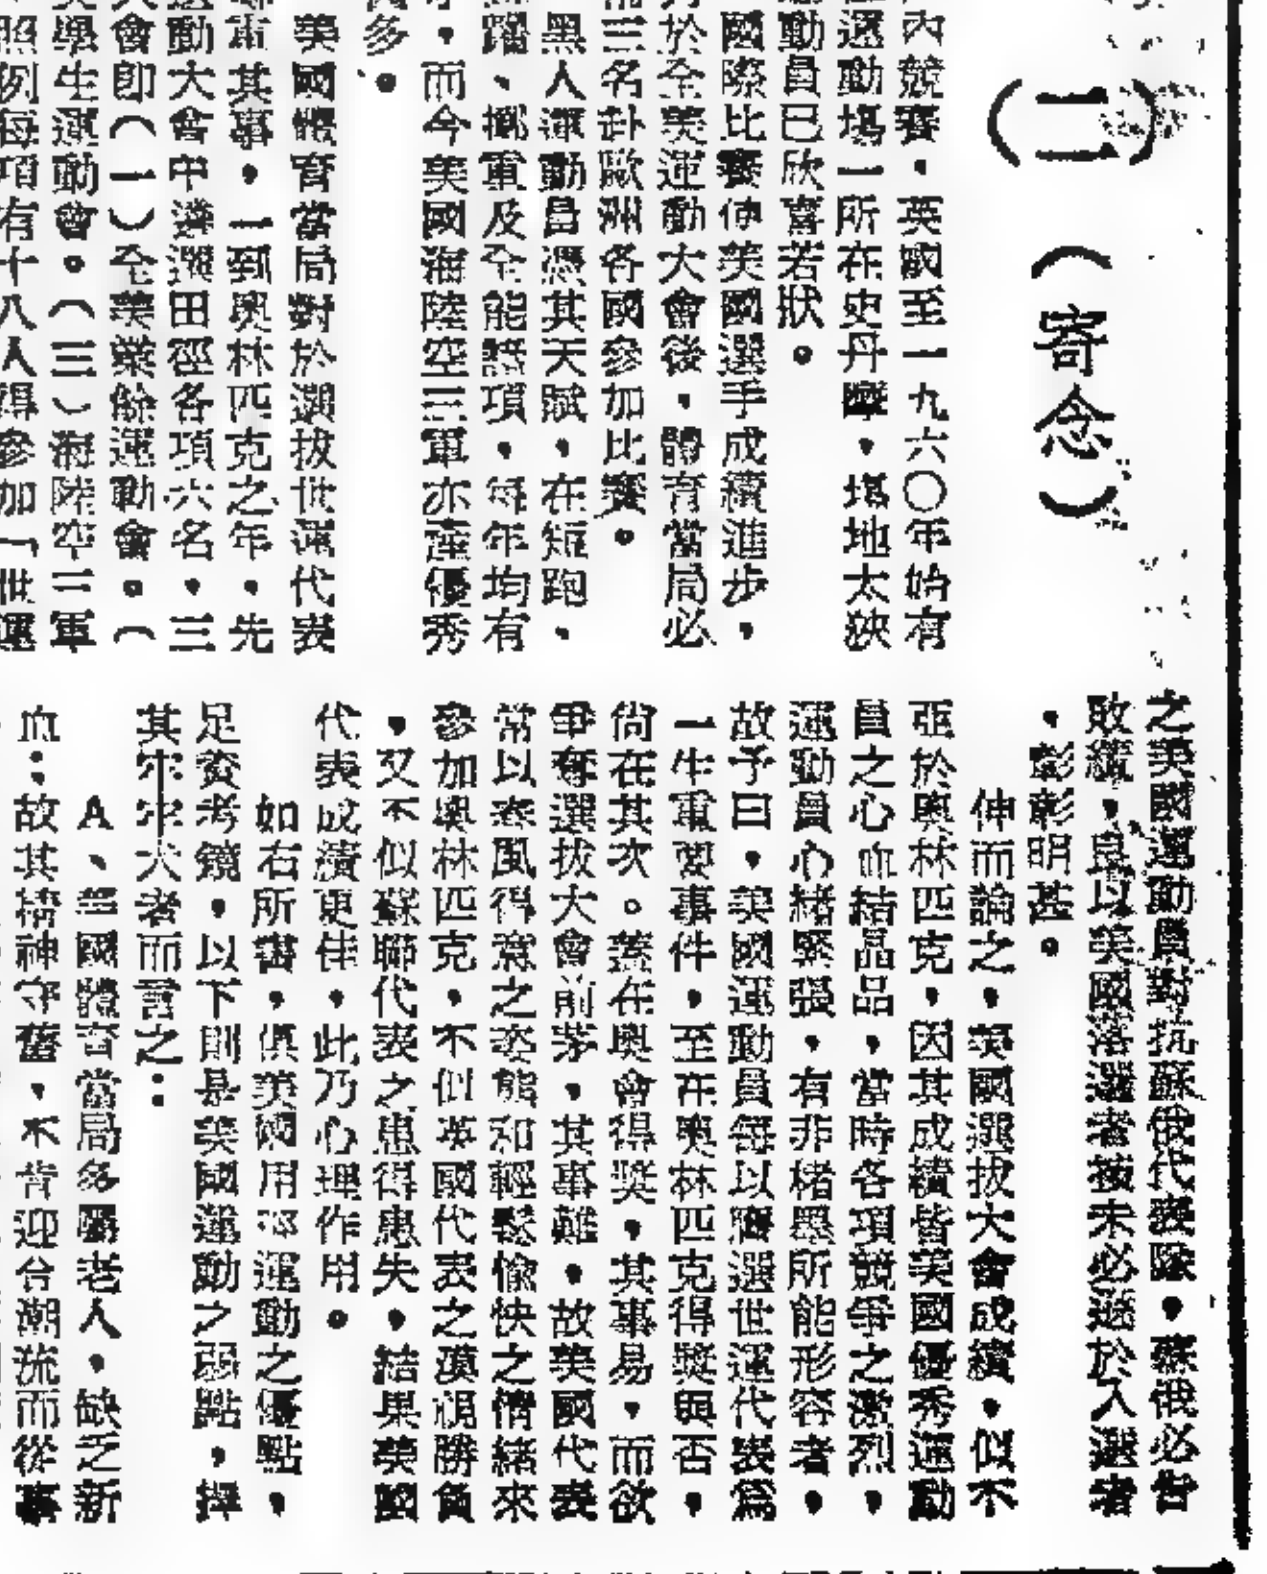 (二)(寄念)
內競賽,英國至一九六〇年始有
運動場一所在史丹,場地太狹
動員已欣喜若狀。
國際比賽使美國選手成績進步,
於全美運動大會後,體育當局必
三名赴歐洲各國參加比賽。
黑人運動員憑其天賦,在短跑,
躍、擲重及全能諸項,每年均有
,而今美國海陸空三軍亦產優秀
多。
美國體育當局對於選拔世運代表
其事,一到奧林匹克之年,先
動大會中遴選田徑各項六名,三
會即(一)全美業餘運動會。(
學生運動會。(三)海陸空三軍
照例每項有十八人得參加「世運
之美國運動員對抗蘇俄代表隊,蘇俄必告
敗績,良以美國落選者按未必遜於入選者
,彭彰明甚。
伸而論之,美國選拔大會成績,似不
亞於奧林匹克,因其成績皆美國優秀運動
員之心血結晶品,當時各項競爭之激烈,
運動員心緒緊張,有非楮墨所能形容者,
故予曰,美國運動員每以膺選世運代表為
一生重要事件,至在奧林匹克得獎與否,
尚在其次。蓋在奧會得獎,其事易,而欲
爭奪選拔大會前茅,其事難,故美國代表
常以春風得意之姿態和輕鬆愉快之情緒來
參加奧林匹克,不似英國代表之漠視勝負
,又不似蘇聯代表之患得患失,結果美國
代表成績更佳,此乃心理作用。
如右所書,俱美國用運動之優點,
足資考鏡,以下則是美國運動之弱點,擇
其犖犖大者而言之:
A、美國體育當局多屬老人,缺乏新
血;故其精神守舊,不肯迎合潮流而從事